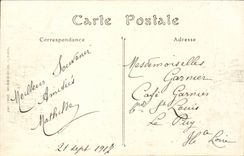 Carte Postale
Correspondance
Adresse
Meilleur Souvenir
Amitiés
Mathilde
21 sept 1917
Mesdemoiselles
Garnier
Café Garnier
St Louis
Le Puy
Hte Loire